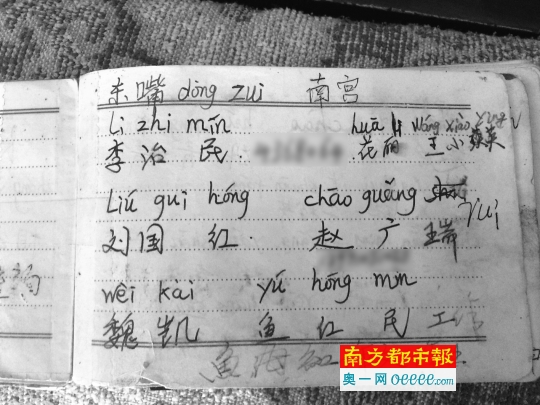 东嘴 dōng zuǐ 南宫
li zhi mín huā li wáng xiǎo
李治民 花丽 王小英
Liú gui hóng chāo guǎng rui
刘国红 赵广瑞
wēi kǎi yú hóng mín
魏凯 鱼红民
鱼 红
南方都市報
奥一网 oeeee.com